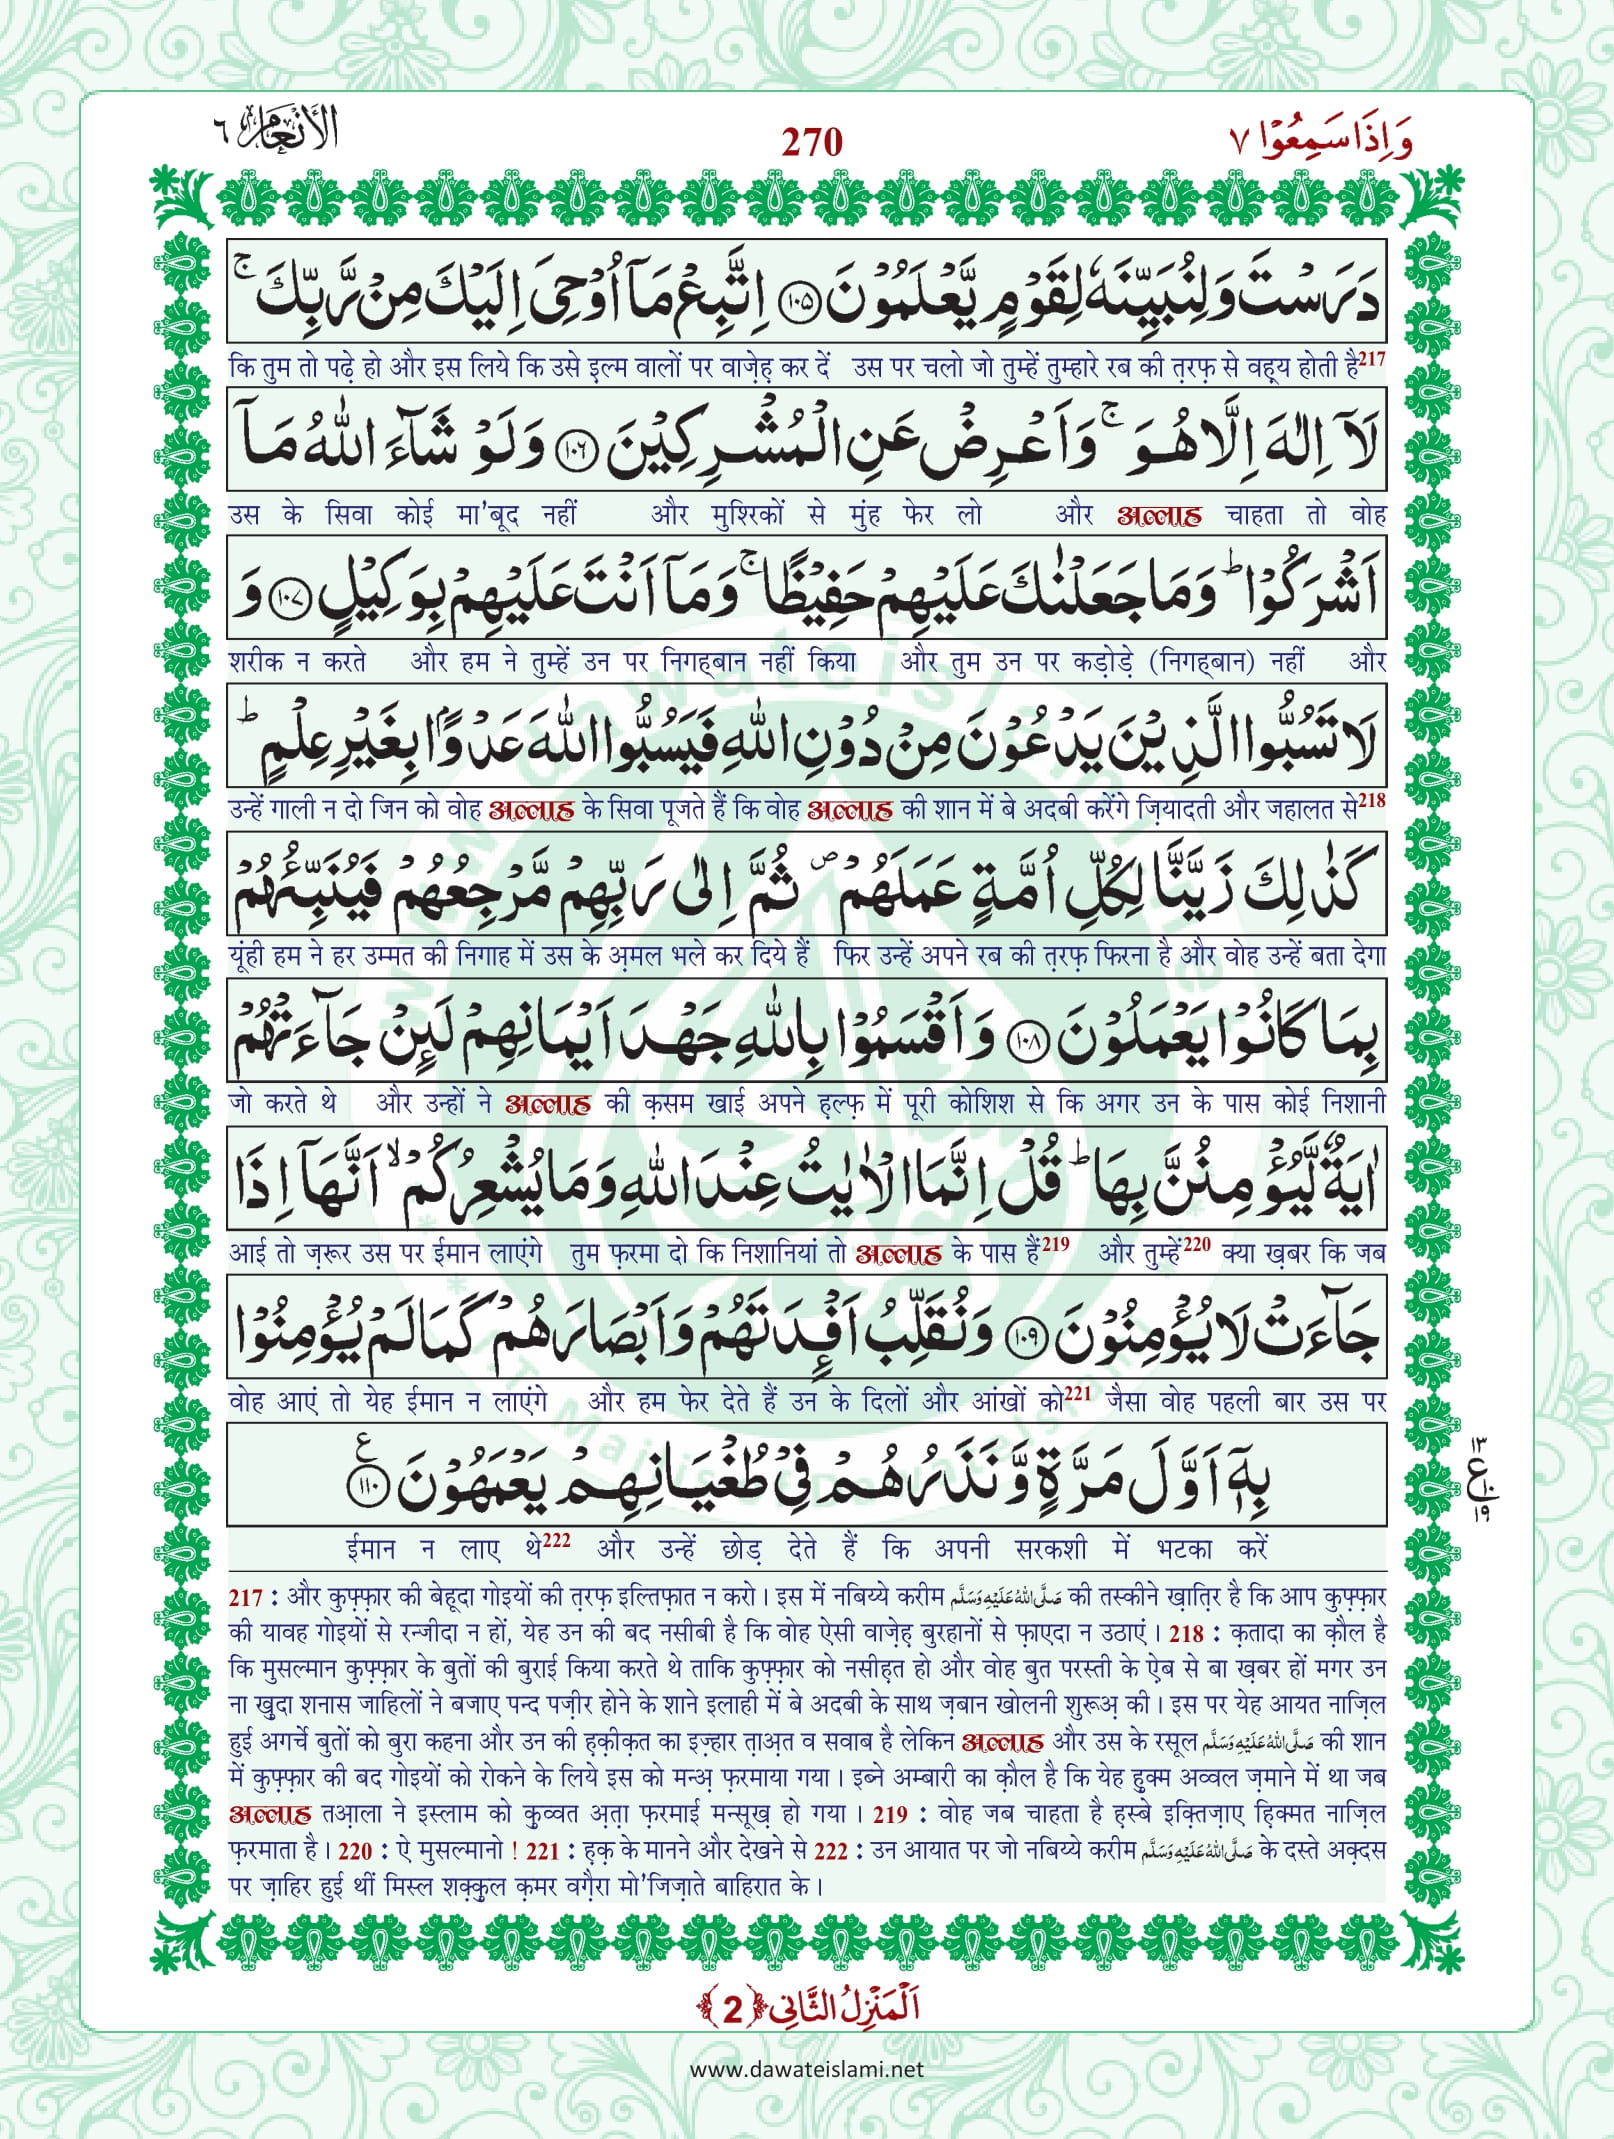 وَاِذَا سَمِعُوْا ٧ 270 الأنعام ٦
دَرَسْتَ وَلِنُبَيِّنَهٗ لِقَوْمٍ يَّعْلَمُوْنَ ﴿١٠٥﴾ اِتَّبِعْ مَاۤ اُوْحِیَ اِلَيْكَ مِنْ رَّبِّكَ ۚ
कि तुम तो पढ़े हो और इस लिये कि उसे इ़ल्म वालों पर वाज़ेह़ कर दें उस पर चलो जो तुम्हें तुम्हारे रब की त़रफ़ से वह़्य होती है217
لَاۤ اِلٰهَ اِلَّا هُوَ ۚ وَاَعْرِضْ عَنِ الْمُشْرِكِيْنَ ﴿١٠٦﴾ وَلَوْ شَآءَ اللّٰهُ مَاۤ
उस के सिवा कोई मा'बूद नहीं और मुश्रिकों से मुंह फेर लो और अल्लाह चाहता तो वोह
اَشْرَكُوْا ؕ وَمَا جَعَلْنٰكَ عَلَيْهِمْ حَفِيْظًا ۚ وَمَاۤ اَنْتَ عَلَيْهِمْ بِوَكِيْلٍ ﴿١٠٧﴾ وَ
शरीक न करते और हम ने तुम्हें उन पर निगह्बान नहीं किया और तुम उन पर कड़ोड़े (निगह्बान) नहीं और
لَا تَسُبُّوا الَّذِيْنَ يَدْعُوْنَ مِنْ دُوْنِ اللّٰهِ فَيَسُبُّوا اللّٰهَ عَدْوًۢا بِغَيْرِ عِلْمٍ ؕ
उन्हें गाली न दो जिन को वोह अल्लाह के सिवा पूजते हैं कि वोह अल्लाह की शान में बे अदबी करेंगे ज़ियादती और जहालत से218
كَذٰلِكَ زَيَّنَّا لِكُلِّ اُمَّةٍ عَمَلَهُمْ ۪ ثُمَّ اِلٰى رَبِّهِمْ مَّرْجِعُهُمْ فَيُنَبِّئُهُمْ
यूंही हम ने हर उम्मत की निगाह में उस के अ़मल भले कर दिये हैं फिर उन्हें अपने रब की त़रफ़ फिरना है और वोह उन्हें बता देगा
بِمَا كَانُوْا يَعْمَلُوْنَ ﴿١٠٨﴾ وَاَقْسَمُوْا بِاللّٰهِ جَهْدَ اَيْمَانِهِمْ لَئِنْ جَآءَتْهُمْ
जो करते थे और उन्हों ने अल्लाह की क़सम खाई अपने ह़ल्फ़ में पूरी कोशिश से कि अगर उन के पास कोई निशानी
اٰيَةٌ لَّيُؤْمِنُنَّ بِهَا ؕ قُلْ اِنَّمَا الْاٰيٰتُ عِنْدَ اللّٰهِ وَمَا يُشْعِرُكُمْ ۙ اَنَّهَاۤ اِذَا
आई तो ज़रूर उस पर ईमान लाएंगे तुम फ़रमा दो कि निशानियां तो अल्लाह के पास हैं219 और तुम्हें220 क्या ख़बर कि जब
جَآءَتْ لَا يُؤْمِنُوْنَ ﴿١٠٩﴾ وَنُقَلِّبُ اَفْـِٕدَتَهُمْ وَاَبْصَارَهُمْ كَمَا لَمْ يُؤْمِنُوْا
वोह आएं तो येह ईमान न लाएंगे और हम फेर देते हैं उन के दिलों और आंखों को221 जैसा वोह पहली बार उस पर
بِهٖۤ اَوَّلَ مَرَّةٍ وَّنَذَرُهُمْ فِیْ طُغْيَانِهِمْ يَعْمَهُوْنَ ﴿١١٠﴾ ع
١٣ ع ١٠ ١٩
ईमान न लाए थे222 और उन्हें छोड़ देते हैं कि अपनी सरकशी में भटका करें
217 : और कुफ़्फ़ार की बेहूदा गोइयों की त़रफ़ इल्तिफ़ात न करो। इस में नबिय्ये करीम صَلَّى اللهُ عَلَيْهِ وَسَلَّم की तस्कीने ख़ात़िर है कि आप कुफ़्फ़ार
की यावह गोइयों से रन्जीदा न हों, येह उन की बद नसीबी है कि वोह ऐसी वाज़ेह़ बुरहानों से फ़ाएदा न उठाएं। 218 : क़तादा का क़ौल है
कि मुसल्मान कुफ़्फ़ार के बुतों की बुराई किया करते थे ताकि कुफ़्फ़ार को नसीह़त हो और वोह बुत परस्ती के ऐ़ब से बा ख़बर हों मगर उन
ना ख़ुदा शनास जाहिलों ने बजाए पन्द पज़ीर होने के शाने इलाही में बे अदबी के साथ ज़बान खोलनी शुरूअ़ की। इस पर येह आयत नाज़िल
हुई अगर्चे बुतों को बुरा कहना और उन की ह़क़ीक़त का इज़्हार त़ाअ़त व सवाब है लेकिन अल्लाह और उस के रसूल صَلَّى اللهُ عَلَيْهِ وَسَلَّم की शान
में कुफ़्फ़ार की बद गोइयों को रोकने के लिये इस को मन्अ़ फ़रमाया गया। इब्ने अम्बारी का क़ौल है कि येह ह़ुक्म अव्वल ज़माने में था जब
अल्लाह तआ़ला ने इस्लाम को क़ुव्वत अ़त़ा फ़रमाई मन्सूख़ हो गया। 219 : वोह जब चाहता है ह़स्बे इक़्तिज़ाए ह़िक्मत नाज़िल
फ़रमाता है। 220 : ऐ मुसल्मानो ! 221 : ह़क़ के मानने और देखने से 222 : उन आयात पर जो नबिय्ये करीम صَلَّى اللهُ عَلَيْهِ وَسَلَّم के दस्ते अक़्दस
पर ज़ाहिर हुई थीं मिस्ल शक़्क़ुल क़मर वग़ैरा मो'जिज़ाते बाहिरात के।
اَلْمَنْزِلُ الثَّانِي ﴿2﴾
www.dawateislami.net